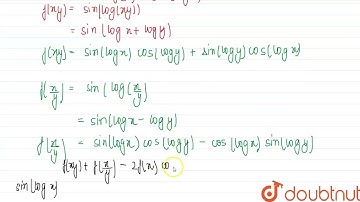 f(xy) = sin(log(xy))
= sin(logx + logy)
f(xy) = sin(logx) cos(logy) + sin(logy) cos(logx)
f(x/y) = sin(log(x/y)
= sin(logx - logy)
f(x/y) = sin(logx) cos(logy) - cos(logx) sin(logy)
f(xy) + f(x/y) - 2f(x) co
sin(logx)
doubtnut